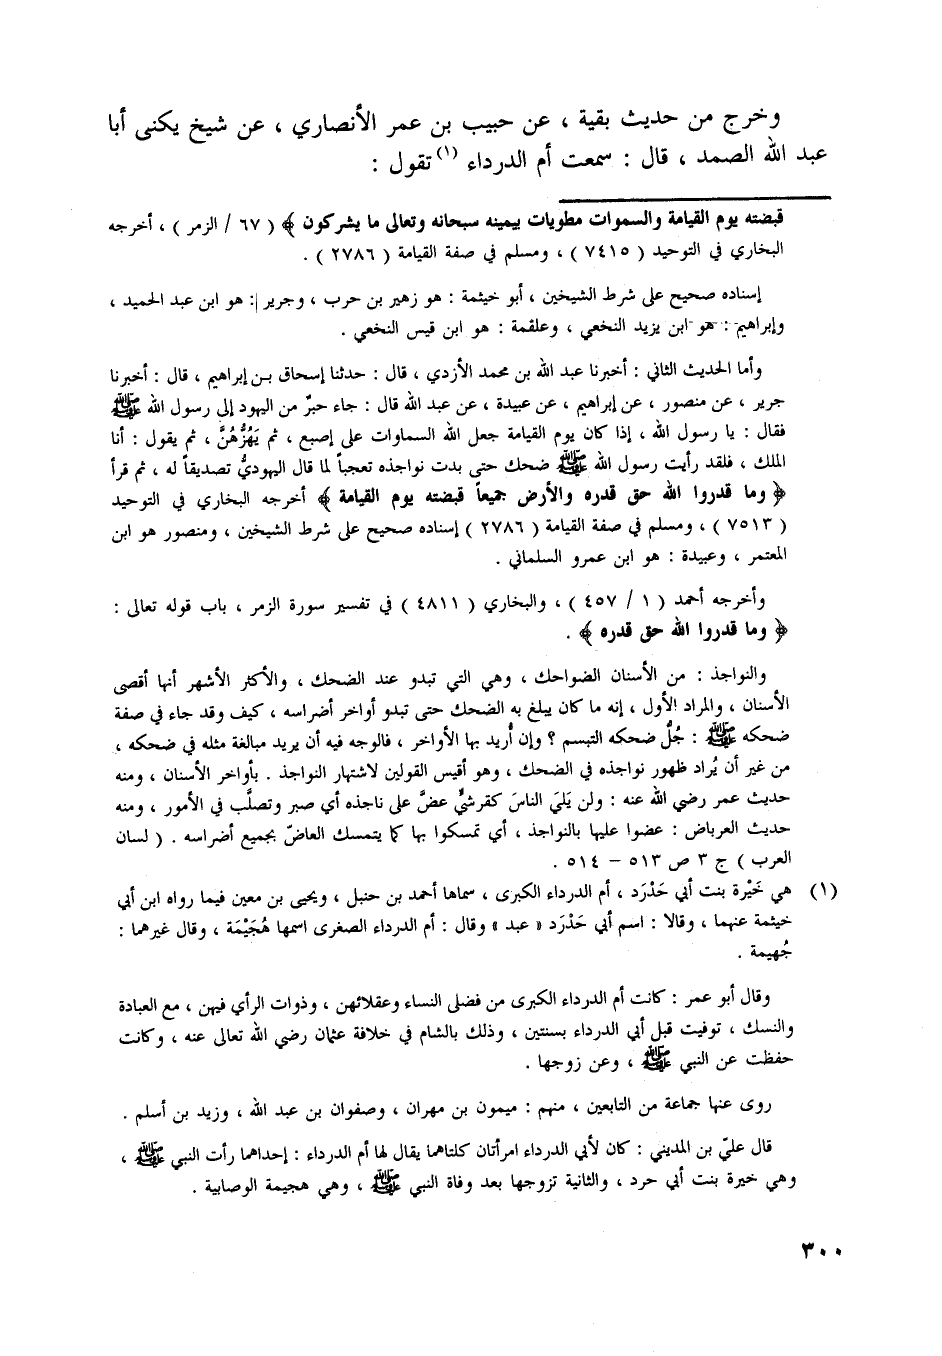 وخرج من حديث بقية ، عن حبيب بن عمر الأنصاري ، عن شيخ يكنى أبا
عبد الله الصمد ، قال : سمعت أم الدرداء (١) تقول :
قبضته يوم القيامة والسموات مطويات بيمينه سبحانه وتعالى ما يشركون ﴾ ( ٦٧ / الزمر ) ، أخرجه
البخاري في التوحيد ( ٧٤١٥ ) ، ومسلم في صفة القيامة ( ٢٧٨٦ ) .
إسناده صحيح على شرط الشيخين ، أبو خيثمة : هو زهير بن حرب ، وجرير : هو ابن عبد الحميد ،
وإبراهيم : هو ابن يزيد النخعي ، وعلقمة : هو ابن قيس النخعي .
وأما الحديث الثاني : أخبرنا عبد الله بن محمد الأزدي ، قال : حدثنا إسحاق بن إبراهيم ، قال : أخبرنا
جرير ، عن منصور ، عن إبراهيم ، عن عبيدة ، عن عبد الله قال : جاء حبرٌ من اليهود إلى رسول الله ﷺ
فقال : يا رسول الله ، إذا كان يوم القيامة جعل الله السماوات على إصبع ، ثم يَهُزُّهُنَّ ، ثم يقول : أنا
الملك ، فلقد رأيت رسول الله ﷺ ضحك حتى بدت نواجذه تعجباً لما قال اليهوديُّ تصديقاً له ، ثم قرأ
﴿ وما قدروا الله حق قدره والأرض جميعاً قبضته يوم القيامة ﴾ أخرجه البخاري في التوحيد
( ٧٥١٣ ) ، ومسلم في صفة القيامة ( ٢٧٨٦ ) إسناده صحيح على شرط الشيخين ، ومنصور هو ابن
المعتمر ، وعبيدة : هو ابن عمرو السلماني .
وأخرجه أحمد ( ١ / ٤٥٧ ) ، والبخاري ( ٤٨١١ ) في تفسير سورة الزمر ، باب قوله تعالى :
﴿ وما قدروا الله حق قدره ﴾ .
والنواجذ : من الأسنان الضواحك ، وهي التي تبدو عند الضحك ، والأكثر الأشهر أنها أقصى
الأسنان ، والمراد الأول ، إنه ما كان يبلغ به الضحك حتى تبدو أواخر أضراسه ، كيف وقد جاء في صفة
ضحكه ﷺ : جُلُّ ضحكه التبسم ؟ وإن أُريد بها الأواخر ، فالوجه فيه أن يريد مبالغة مثله في ضحكه ،
من غير أن يُراد ظهور نواجذه في الضحك ، وهو أقيس القولين لاشتهار النواجذ . بأواخر الأسنان ، ومنه
حديث عمر رضي الله عنه : ولن يَليَ الناسَ كقرشيٍّ عضَّ على ناجذه أي صبر وتصلَّب في الأمور ، ومنه
حديث العرباض : عضوا عليها بالنواجذ ، أي تمسكوا بها كما يتمسك العاضّ بجميع أضراسه . ( لسان
العرب ) ج ٣ ص ٥١٣ – ٥١٤ .
(١) هي خَيْرة بنت أبي حَدْرَد ، أم الدرداء الكبرى ، سماها أحمد بن حنبل ، ويحيى بن معين فيما رواه ابن أبي
خيثمة عنهما ، وقالا : اسم أبي حَدْرَد « عبد » وقال : أم الدرداء الصغرى اسمها هُجَيْمَة ، وقال غيرهما :
جُهيمة .
وقال أبو عمر : كانت أم الدرداء الكبرى من فضلى النساء وعقلائهن ، وذوات الرأي فيهن ، مع العبادة
والنسك ، توفيت قبل أبي الدرداء بسنتين ، وذلك بالشام في خلافة عثمان رضي الله تعالى عنه ، وكانت
حفظت عن النبي ﷺ ، وعن زوجها .
روى عنها جماعة من التابعين ، منهم : ميمون بن مهران ، وصفوان بن عبد الله ، وزيد بن أسلم .
قال عليّ بن المديني : كان لأبي الدرداء امرأتان كلتاهما يقال لها أم الدرداء : إحداهما رأت النبي ﷺ ،
وهي خيرة بنت أبي حرد ، والثانية تزوجها بعد وفاة النبي ﷺ ، وهي هجيمة الوصابية .
٣٠٠